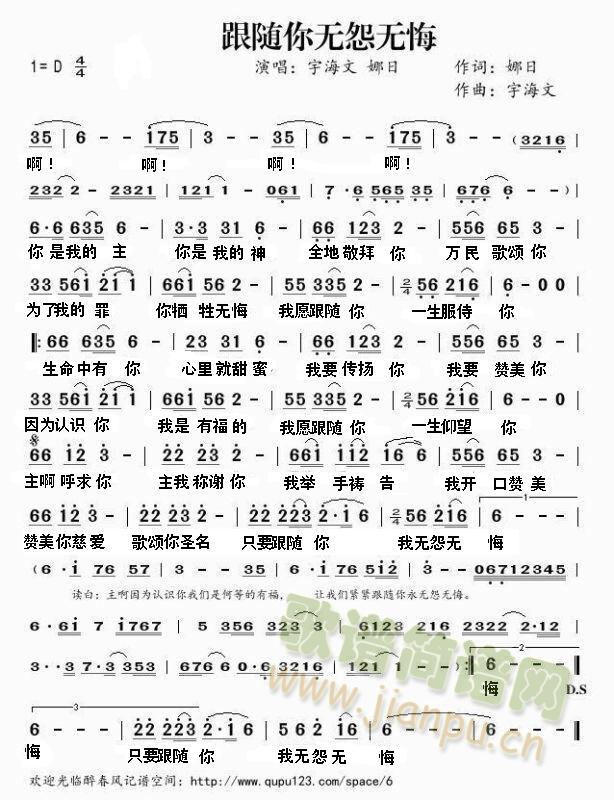 跟随你无怨无悔
1= D 4/4 演唱：宇海文 娜日 作词：娜日
作曲：宇海文
35 | 6 - - i75 | 3 - - 35 | 6 - - i75 | 3 - - (3216 |
啊！ 啊！ 啊！ 啊！
232 2 - 2321 | 121 1 - 061 | 7 · 6 565 35 | 676 6 - - ) |
6·6 635 6 - | 3·3 31 6 - | 66 123 2 - | 556 65 3 - |
你是我的 主 你是我的神 全地敬拜 你 万民 歌颂你
33 561 21 1 | 661 56 2 - | 55 335 2 - | 2/4 56 216 | 6 - 0 0 |
为了我的 罪 你牺 牲无悔 我愿跟随 你 一生服侍 你
|: 66 635 6 - | 23 31 6 - | 66 123 2 - | 556 65 3 - |
生命中有 你 心里就甜蜜 我要传扬 你 我要 赞美你
33 561 21 1 | 661 56 2 - | 55 335 2 - | 2/4 56 216 | 6 - 0 0 |
因为认识 你 我是 有福的 我愿跟随 你 一生仰望 你
66 12 3 - | 22 23 6 - | 661 112 6 - | 556 65 3 - |
主啊 呼求你 主我称谢你 我举 手祷 告 我开 口赞 美
66 12 3 - | 22 23 2 - | 22 223 2·i 6 | 2/4 56 216 | 6 - - - |
赞美你慈爱 歌颂你圣名 只要跟随 你 我无怨无 悔
(6·i 76 57 | 3·i 76 53 | 2·i 76 23 | 3 - - 06712345 |
读白：主啊因为认识你我们是何等的有福， 让我们紧紧跟随你永无怨无悔。
6·6i 7 i767 | 5 356 53 3 - | 6123 216 2322 2·12 |
3·3 7·3 353 | 676 6 0·6 3216 | 6 - - - ) :| 6 - - - |
悔 D.S
6 - - - | 22 223 2·i 6 | 5 6 2 16 | 6 - - - |
悔 只要跟随 你 我无怨无 悔
欢迎光临醉春风记谱空间：http://www.qupu123.com/space/6
歌谱简谱网
www.jianpu.cn